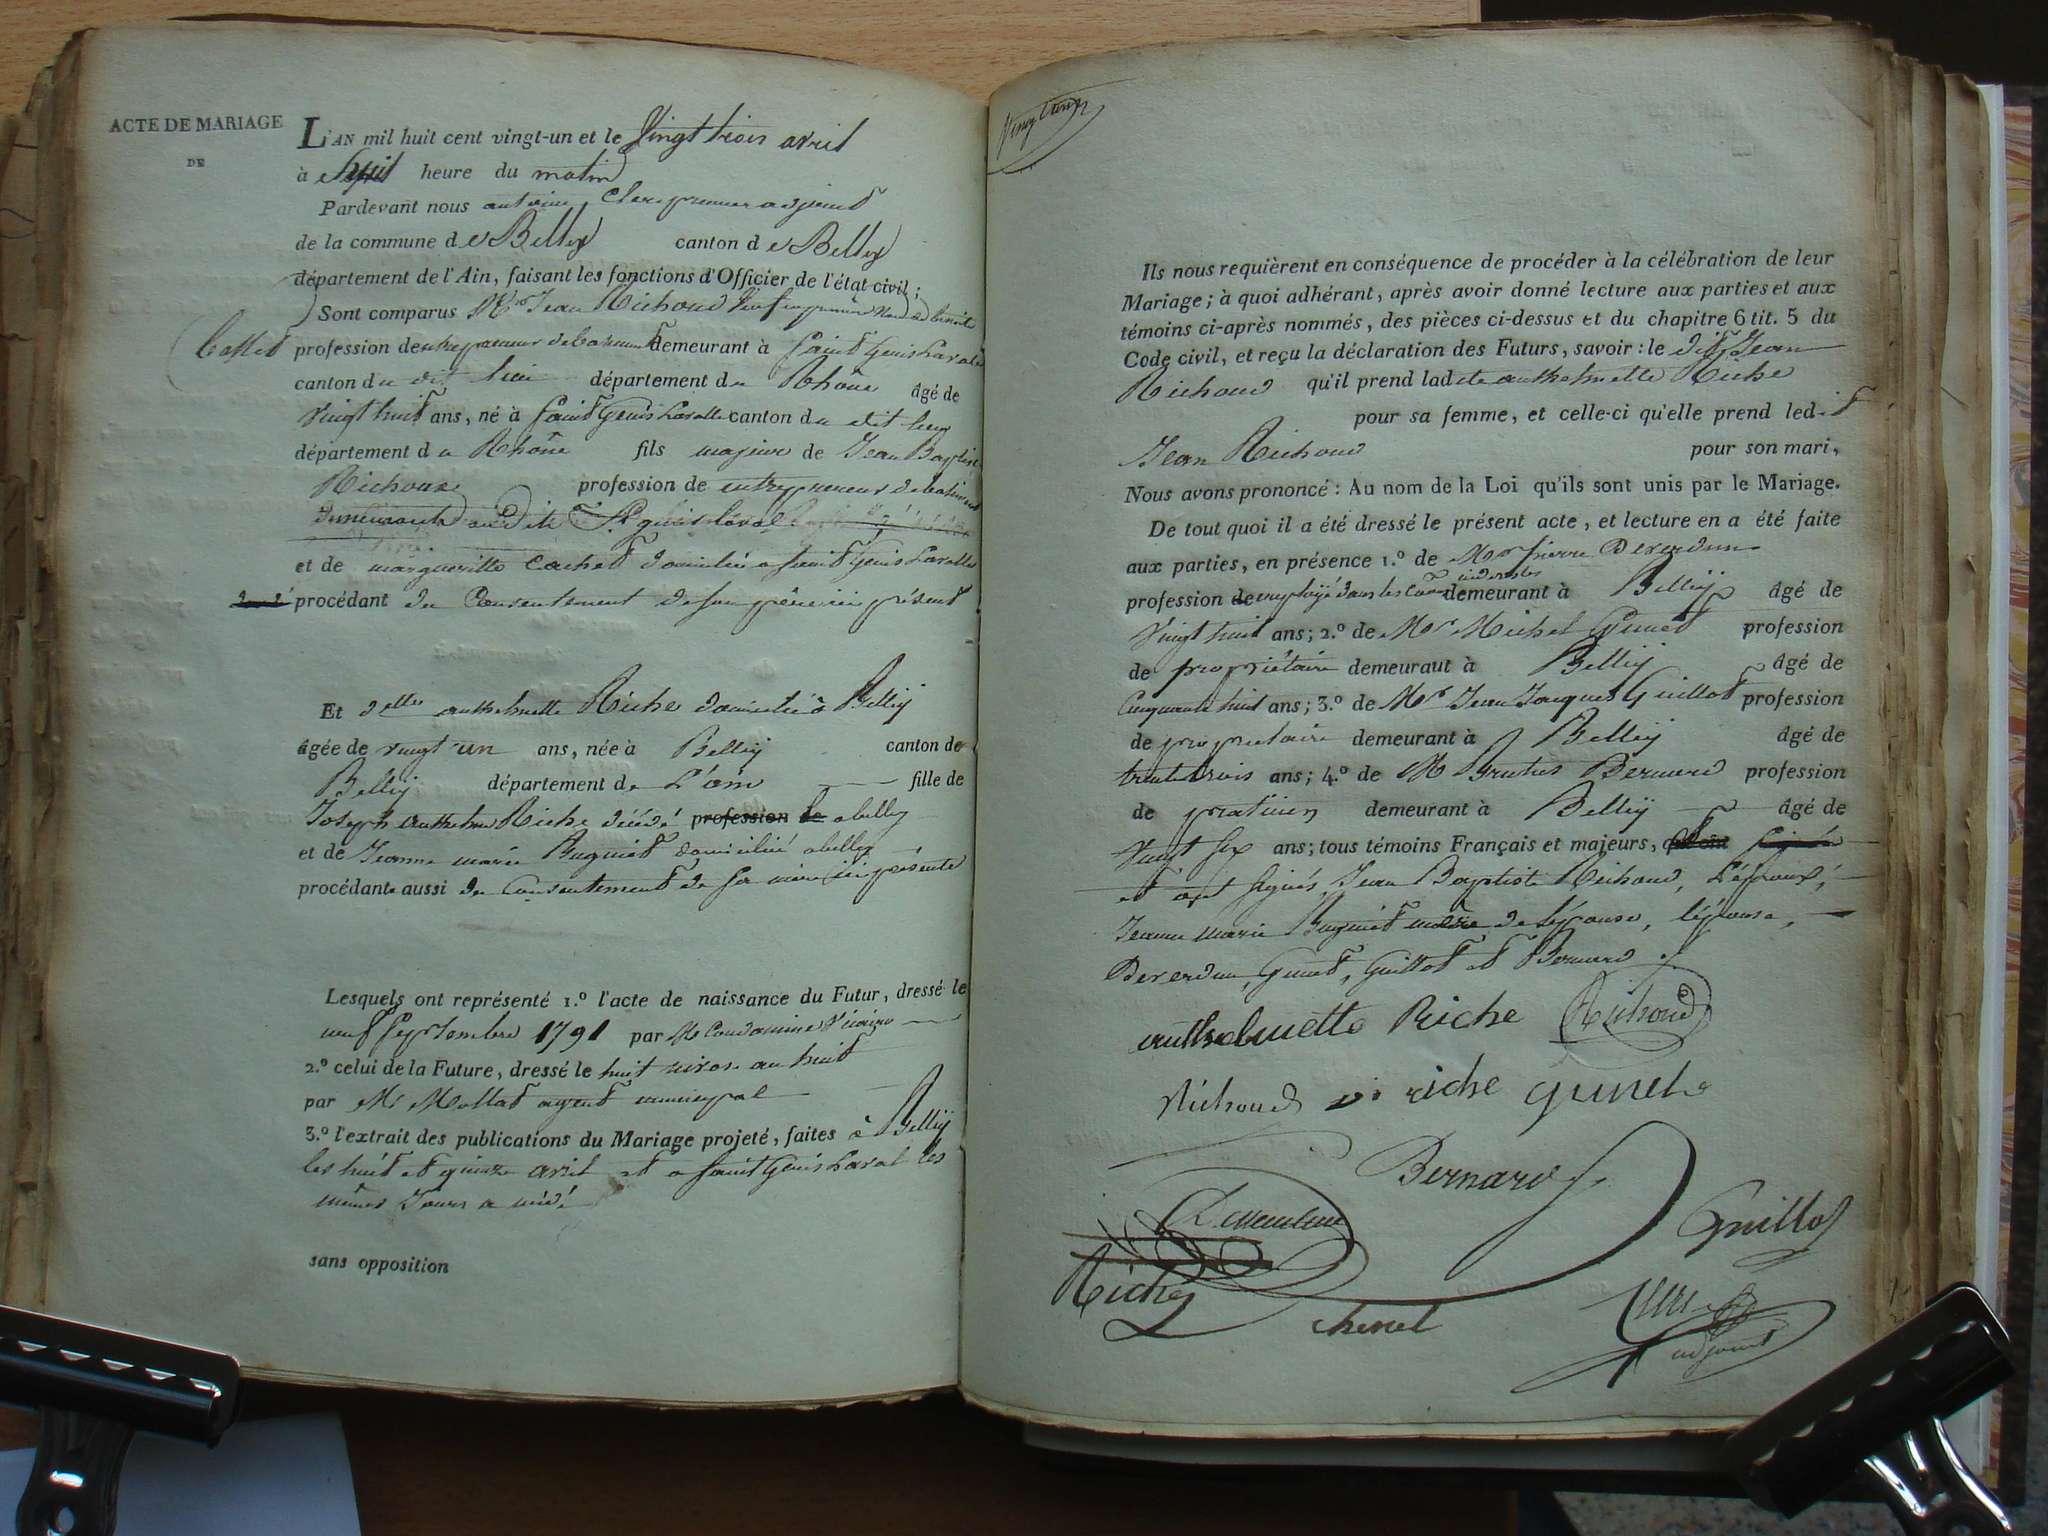 ACTE DE MARIAGE
DE
L'AN mil huit cent vingt-un et le Vingt trois avril
à heure du matin
Pardevant nous antoine Clerc premier adjoint
de la commune de Belley canton de Belley
département de l'Ain, faisant les fonctions d'Officier de l'état civil;
Sont comparus Mr Jean Richoud veuf en première Noce de benoite
Collet profession d'entrepreneur de batiment demeurant à Saint Genis Laval
canton du dit lieu département du Rhône âgé de
Vingt huit ans, né à Saint Genis Lavalle canton du dit lieu
département du Rhône fils majeur de Jean Baptiste
Richoud profession de entrepreneur de batiment
demeurant audit St genis laval
et de margueritte Cachet domiciliée a Saint Genis Lavalle
procédant du Consentement de son père ici présent
Et delle anthelmette Riche domiciliée à Belley
âgée de vingt un ans, née à Belley canton de
Belley département de L'ain fille de
Joseph anthelme Riche décédé profession de a belley
et de Jeanne marie Buguiet domicilié a belley
procédante aussi du Consentement de sa mère ici présente
Lesquels ont représenté 1.º l'acte de naissance du Futur, dressé le
neuf Septembre 1791 par M Condamine Vicaire
2.º celui de la Future, dressé le huit nivose an huit
par Mr Mollat agent municipal
3.º l'extrait des publications du Mariage projeté, faites à Belley
les huit et quinze avril et a Saint Genis Laval les
mêmes Jours a midi
sans opposition
Ils nous requièrent en conséquence de procéder à la célébration de leur
Mariage; à quoi adhérant, après avoir donné lecture aux parties et aux
témoins ci-après nommés, des pièces ci-dessus et du chapitre 6 tit. 5 du
Code civil, et reçu la déclaration des Futurs, savoir: le dit Jean
Richoud qu'il prend ladite anthelmette Riche
pour sa femme, et celle-ci qu'elle prend ledit
Jean Richoud pour son mari,
Nous avons prononcé: Au nom de la Loi qu'ils sont unis par le Mariage.
De tout quoi il a été dressé le présent acte, et lecture en a été faite
aux parties, en présence 1.º de Mr pierre Deverdun
profession de employé dans les indirectes demeurant à Belley âgé de
Vingt huit ans; 2.º de Mr Michel Gunet profession
de propriétaire demeurant à Belley âgé de
Cinquante huit ans; 3.º de Mr Jean Jacques Guillot profession
de propriétaire demeurant à Belley âgé de
trente trois ans; 4.º de M Brutus Bernard profession
de praticien demeurant à Belley âgé de
Vingt Six ans; tous témoins Français et majeurs,
et ont signés Jean Baptiste Richoud, L'époux,
Jeanne marie Buguiet mère de l'épouse, l'épouse,
Deverdun, Gunet, Guillot et Bernard
anthelmette Riche Richoud
Richoud riche gunet
Bernard
Guillot
Riche
Chenel
adjoint